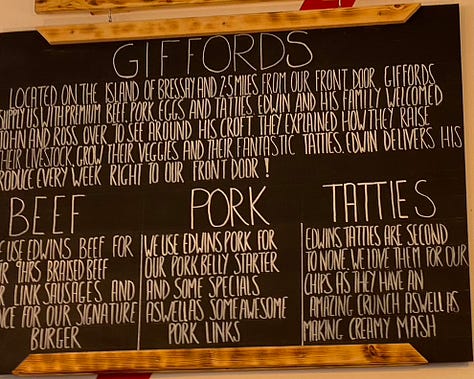 GIFFORDS
LOCATED ON THE ISLAND OF BRESSAY AND 2.5 MILES FROM OUR FRONT DOOR. GIFFORDS
SUPPLY US WITH PREMIUM BEEF, PORK, EGGS AND TATTIES. EDWIN AND HIS FAMILY WELCOMED
JOHN AND ROSS OVER TO SEE AROUND HIS CROFT. THEY EXPLAINED HOW THEY RAISE
THEIR LIVESTOCK, GROW THEIR VEGGIES AND THEIR FANTASTIC TATTIES. EDWIN DELIVERS HIS
PRODUCE EVERY WEEK RIGHT TO OUR FRONT DOOR!
BEEF
USE EDWINS BEEF FOR
9HRS BRAISED BEEF
LINK SAUSAGES AND
FOR OUR SIGNATURE
BURGER
PORK
WE USE EDWINS PORK FOR
OUR PORK BELLY STARTER
AND SOME SPECIALS
ASWELL AS SOME AWESOME
PORK LINKS
TATTIES
EDWINS TATTIES ARE SECOND
TO NONE. WE LOVE THEM FOR OUR
CHIPS AS THEY HAVE AN
AMAZING CRUNCH ASWELL AS
MAKING CREAMY MASH